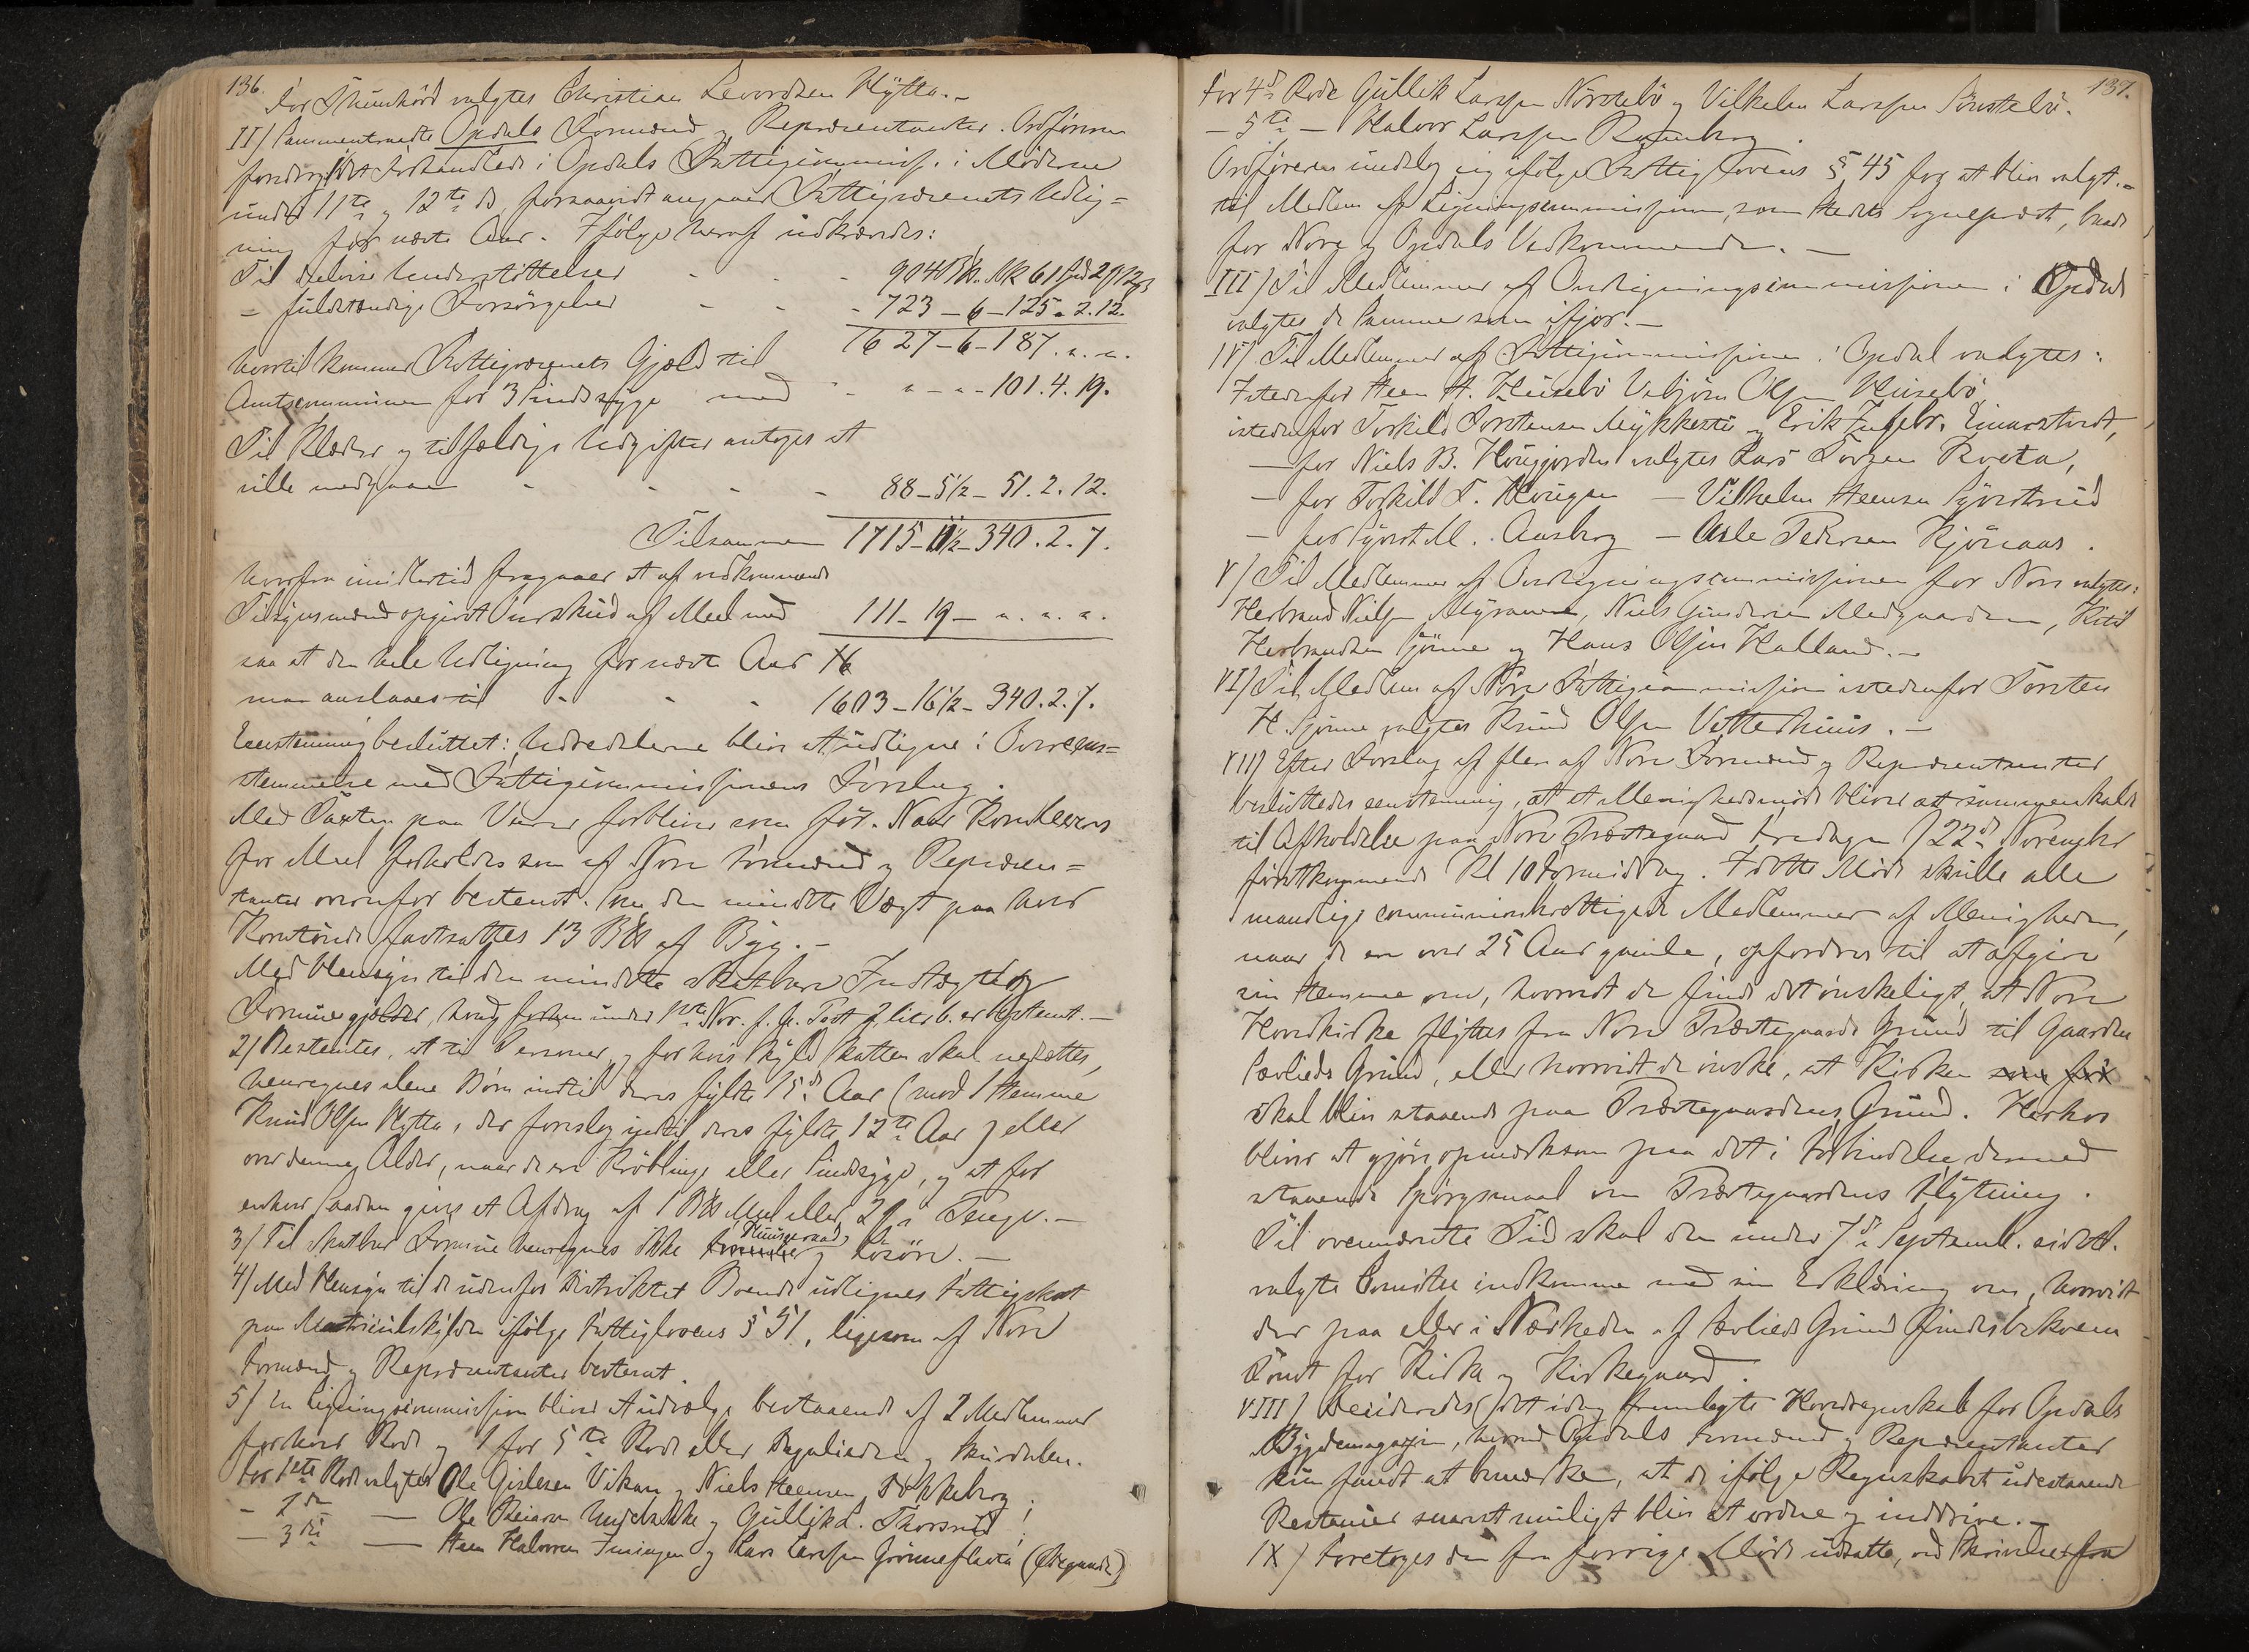 136.
For Skjønhörd valgtes Christian Levordsen Hÿtta. -
II/ Sammentraadte Opdals Formænd og Repræsentanter. Ordføreren
foredrog det Forhandlede i Opdals Fattigcommiss. i Møderne
under 11te og 12te ds, forsaavidt angaaer Fattigvæsenets Udlig=
ning for næste Aar. Ifølge heraf udkrævedes:
Til delvise Understøttelser - - - 904 61 2 12
- fuldstændige Forsørgelser - - - 723 - 6 - 125 - 2. 12.
1627 - 6 - 187. „. „.
hvortil kommer Fattigvæsenets Gjæld til
Amtscommunen for 3 Sindssyge med - „ - „ - 101. 4. 19.
Til Klæder og tilfældige Udgifter antoges at
ville medgaae - - - - 88 - 5½ - 51. 2. 12.
Tilsammen 1715 - 11½ - 340. 2. 7.
hvorfra imidlertid fragaaer et af vedkommende
Tilsynsmænd opgivet Overskud af Meel med 111 - 19 - „. „. „.
saa at den hele Udligning for næste Aar
maa anslaaes til - - - 1603 - 16½ - 340. 2. 7.
Eenstemmig besluttet: Udredslerne blive at udligne i Overeens=
stemmelse med Fattigcommissionens Forslag.
Med Taxten paa Varer forbliver som før. Naar Korn leveres
for Meel forholdes som af Nore Formænd og Repræsen=
tanter ovenfor bestemt. Som den mindste Vægt paa hver
Korntønde fastsattes 13 af Byg. -
Med Hensyn til den mindste skatbare Indtægt og
Formue gjælder, hvad under 1ste Nov. f. A. Post 2, litr b. er bestemt. -
2/ Bestemtes, at til Personer, for hvis Skyld Skatten skal nedsættes,
henregnes alene Børn indtil deres fyldte 15de Aar (mod 1 Stemme
Knud Olsen Hytta, der foreslog indtil deres fyldte 12te Aar) eller
over denne Alder, naar de ere Krøblinge eller Sindssyge, og at for
enhver Saadan gives et Afdrag af 1 Meel eller 2 i Penge. -
3/ Til skatbar Formue henregnes ikke Huusgeraad og Løsøre. -
4/ Med Hensyn til de udenfor Distriktet Boende udlignes Fattigskat
paa Matriculskylden ifølge Fattiglovens § 51, ligesom af Nore
Formænd og Repræsentanter bestemt.
5/ En Ligningscommission bliver at udvælge bestaaende af 2 Medlemmer
for hver Rode og 1 for 5te Rode eller Dagaliøden og Skurdalen.
For 1ste Rode valgtes Ole Gislesen Vikan og Niels Steensen Dokkeberg!
- 2den - Ole Reiarsen og Gullik L. Thorsrud!
- 3die - Steen Halvorsen Juvingen og Lars Larssen Grønneflata (Ødegaard)
137.
For 4de Rode Gullik Larssen Nørstebø og Vilhelm Larssen Sønstebø.
- 5te - Halvor Larssen Rosenberg.
Ordføreren undslog sig ifølge Fattiglovens § 45 for at blive valgt. -
til Medlem af Ligningscommissionen, som Stedets Sognepræst, baade
for Nore og Opdals Vedkommende. -
III/ Til Medlemmer af Overligningscommissionen i Opdal
valgtes de Samme som ifjor. -
IV/ Til Medlemmer af Fattigcommissionen i Opdal valgtes:
Istedenfor Steen H. Huusebø Vebjørn Olsen Huusebø,
istedenfor Torkild Torstensen Mykkestu og Erik Einarstvedt,
- for Niels B. Hougjorden valgtes Lars Tovsen Rueta,
- for Torkild T. Hougen - Vilhelm Steensen Sjørstrud
- for M. Aasberg - Asle Pedersen Kjønaas.
V/ Til Medlemmer af Overligningscommissionen for Nore valgtes:
Herbrand Nielsen Myrann, Niels Gundersen Medgaarden, Kittil
Herbrandsen Sjønne og Hans Olsen Halland. -
VI/ Til Medlem af Nore Fattigcommission istedenfor Torsten
H. Sjønne valgtes Knud Olsen Vetterhuus. -
VII/ Efter Forslag af flere af Nore Formænd og Repræsentanter
besluttedes eenstemmig, at et Menighedsmøde bliver at sammenkalde
til Afholdelse paa Nore Præstegaard Fredagen d 22de November
førstkommende Kl 10 Formiddag. I dette Møde skulle alle
mandlige communionberettigede Medlemmer af Menigheden,
naar de ere over 25 Aar gamle, opfordres til at afgive
sin Stemme om, hvorvidt de finde det ønskeligt, at Nore
Hovedkirke flyttes fra Nore Præstegaards Grund til Gaarden
Sevlieds Grund, eller hvorvidt de ønske, at Kirken som før
skal blive staaende paa Præstegaardens Grund. Herhos
bliver at gjøre opmærksom paa det i Forbindelse dermed
staaende Spørgsmaal om Præstegaardens Flytning.
Til ovennævnte Tid skal den under 7de Septemb. sidstl.
valgte Comitee indkomme med sin Erklæring om, hvorvidt
der paa eller i Nærheden af Sevlieds Grund findes bekvem
Tomt for Kirke og Kirkegaard.
VIII/ Decideredes det idag fremlagte Hovedregnskab for Opdals
Bygdemagazin, hvorved Opdals Formænd og Repræsentanter
kun fandt at bemærke, at de ifølge Regnskabet udestaaende
Restancer snarest muligt blive at ordne og inddrive. -
IX/ Foretoges den fra forrige Møde udsatte, ved Skrivelse fra